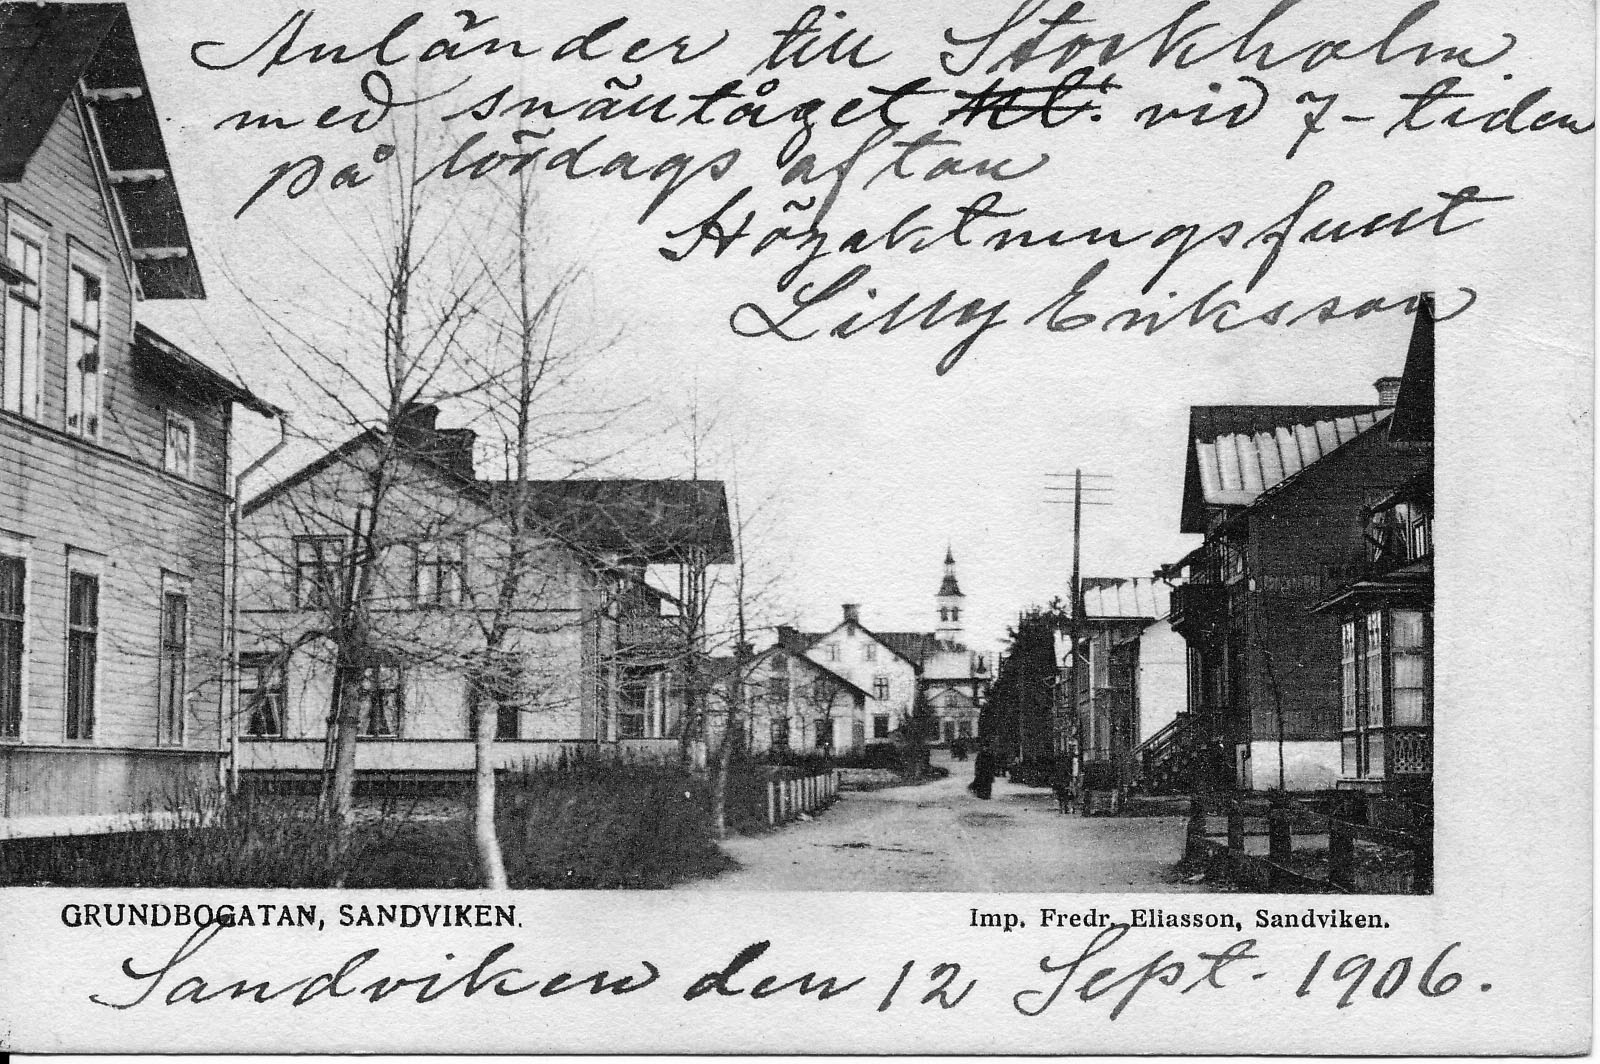 Anländer till Stockholm
med snälltåget kl. vid 7-tiden
på lördags afton
Högaktningsfullt
Lilly Eriksson
GRUNDBOGATAN, SANDVIKEN.
Imp. Fredr. Eliasson, Sandviken.
Sandviken den 12 Sept. 1906.